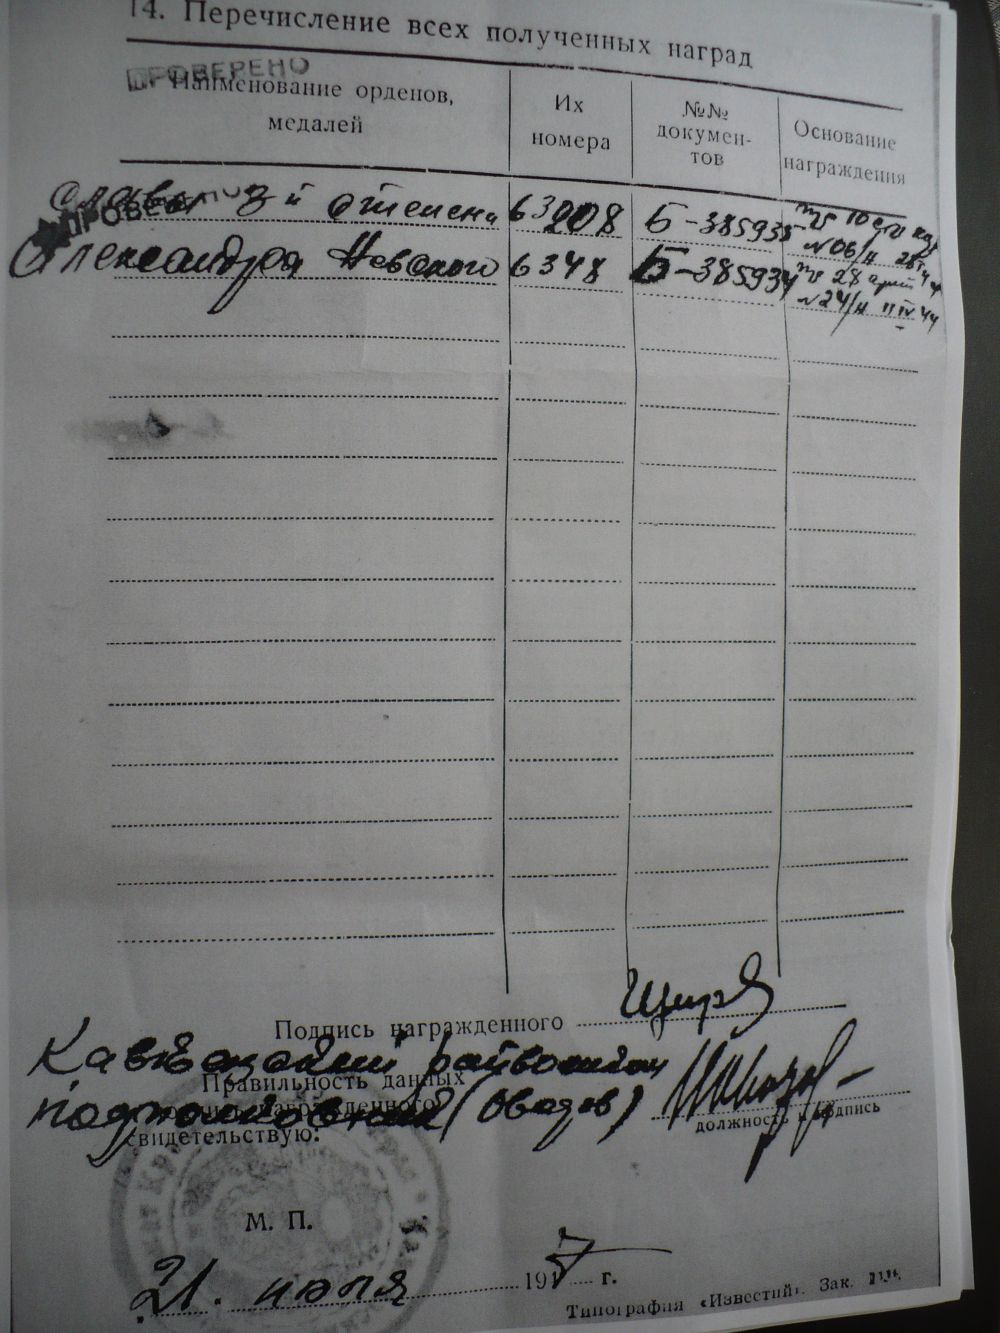 14. Перечисление всех полученных наград
ПРОВЕРЕНО
Наименование орденов, медалей
Их номера
№№ документов
Основание награждения
Славы 3й степени 63208 Б-385935
№ 06/н
ПРОВЕРЕНО
Александра Невского 6348 Б-385934
28
№ 24/н 11 IV 44
Подпись награжденного
Кавказский райвоенком
Правильность данных
подполковник
награжденного
свидетельствую:
должность и подпись
М. П.
21. июля 197 г.
Типография «Известий». Зак.